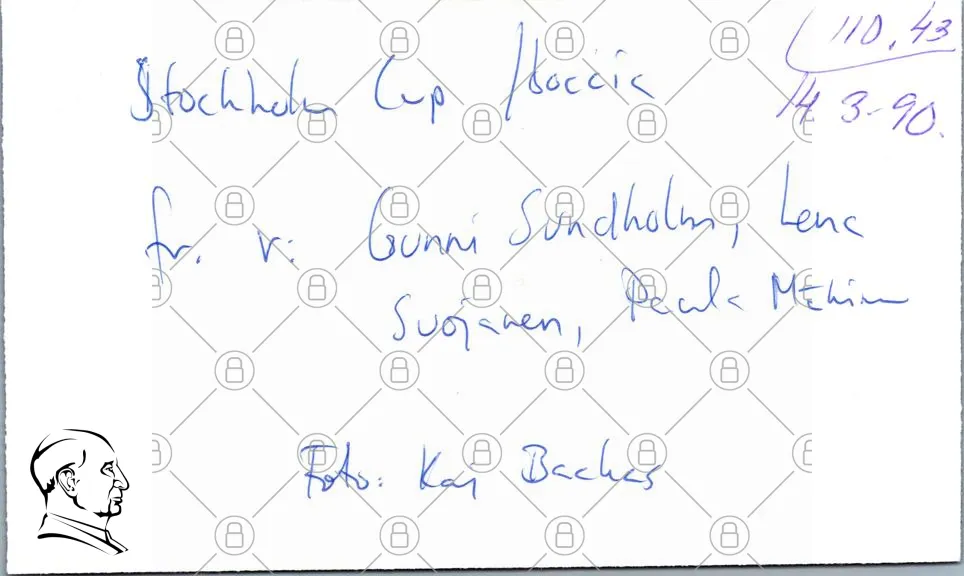 110.43
Stockholm Cup / Boccia
14. 3-90.
fr. v: Gunni Sundholm, Lena
Suojanen, Paula
Foto: Kaj Backas